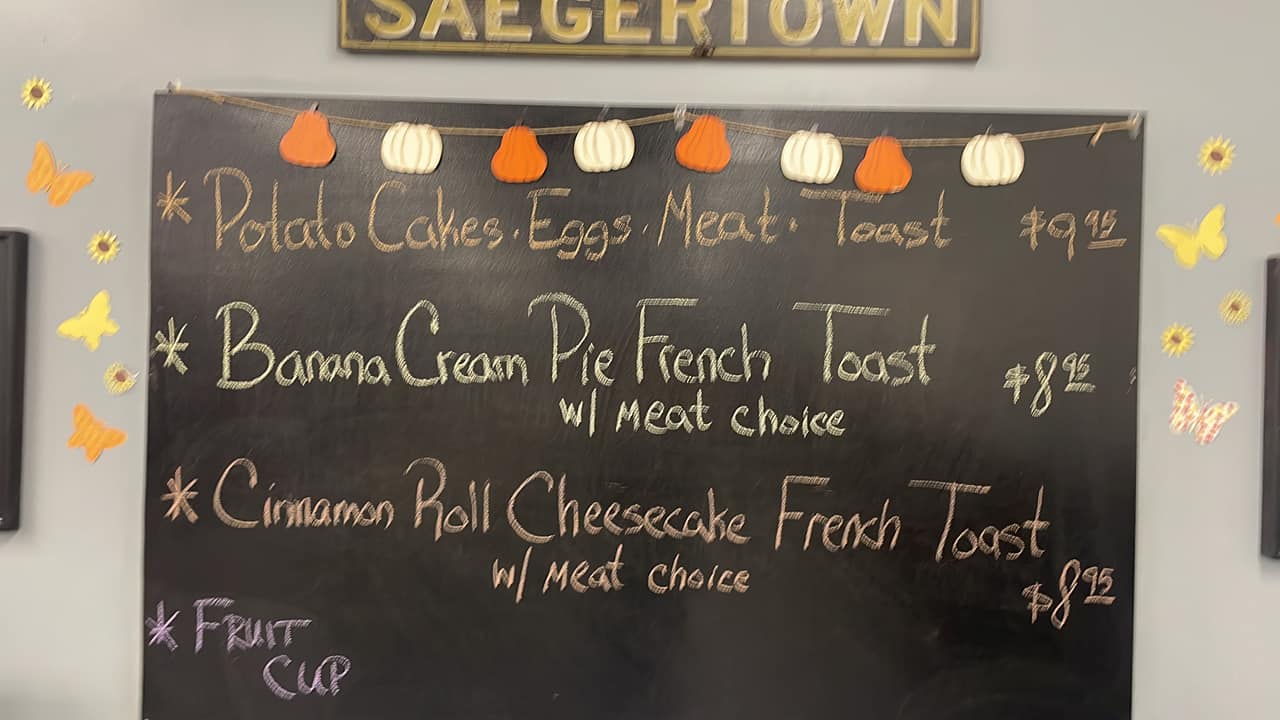 SAEGERTOWN
* Potato Cakes. Eggs. Meat. Toast $9.95
* Banana Cream Pie French Toast $8.95
w/ Meat choice
* Cinnamon Roll Cheesecake French Toast
w/ Meat choice $8.95
* FRUIT
CUP